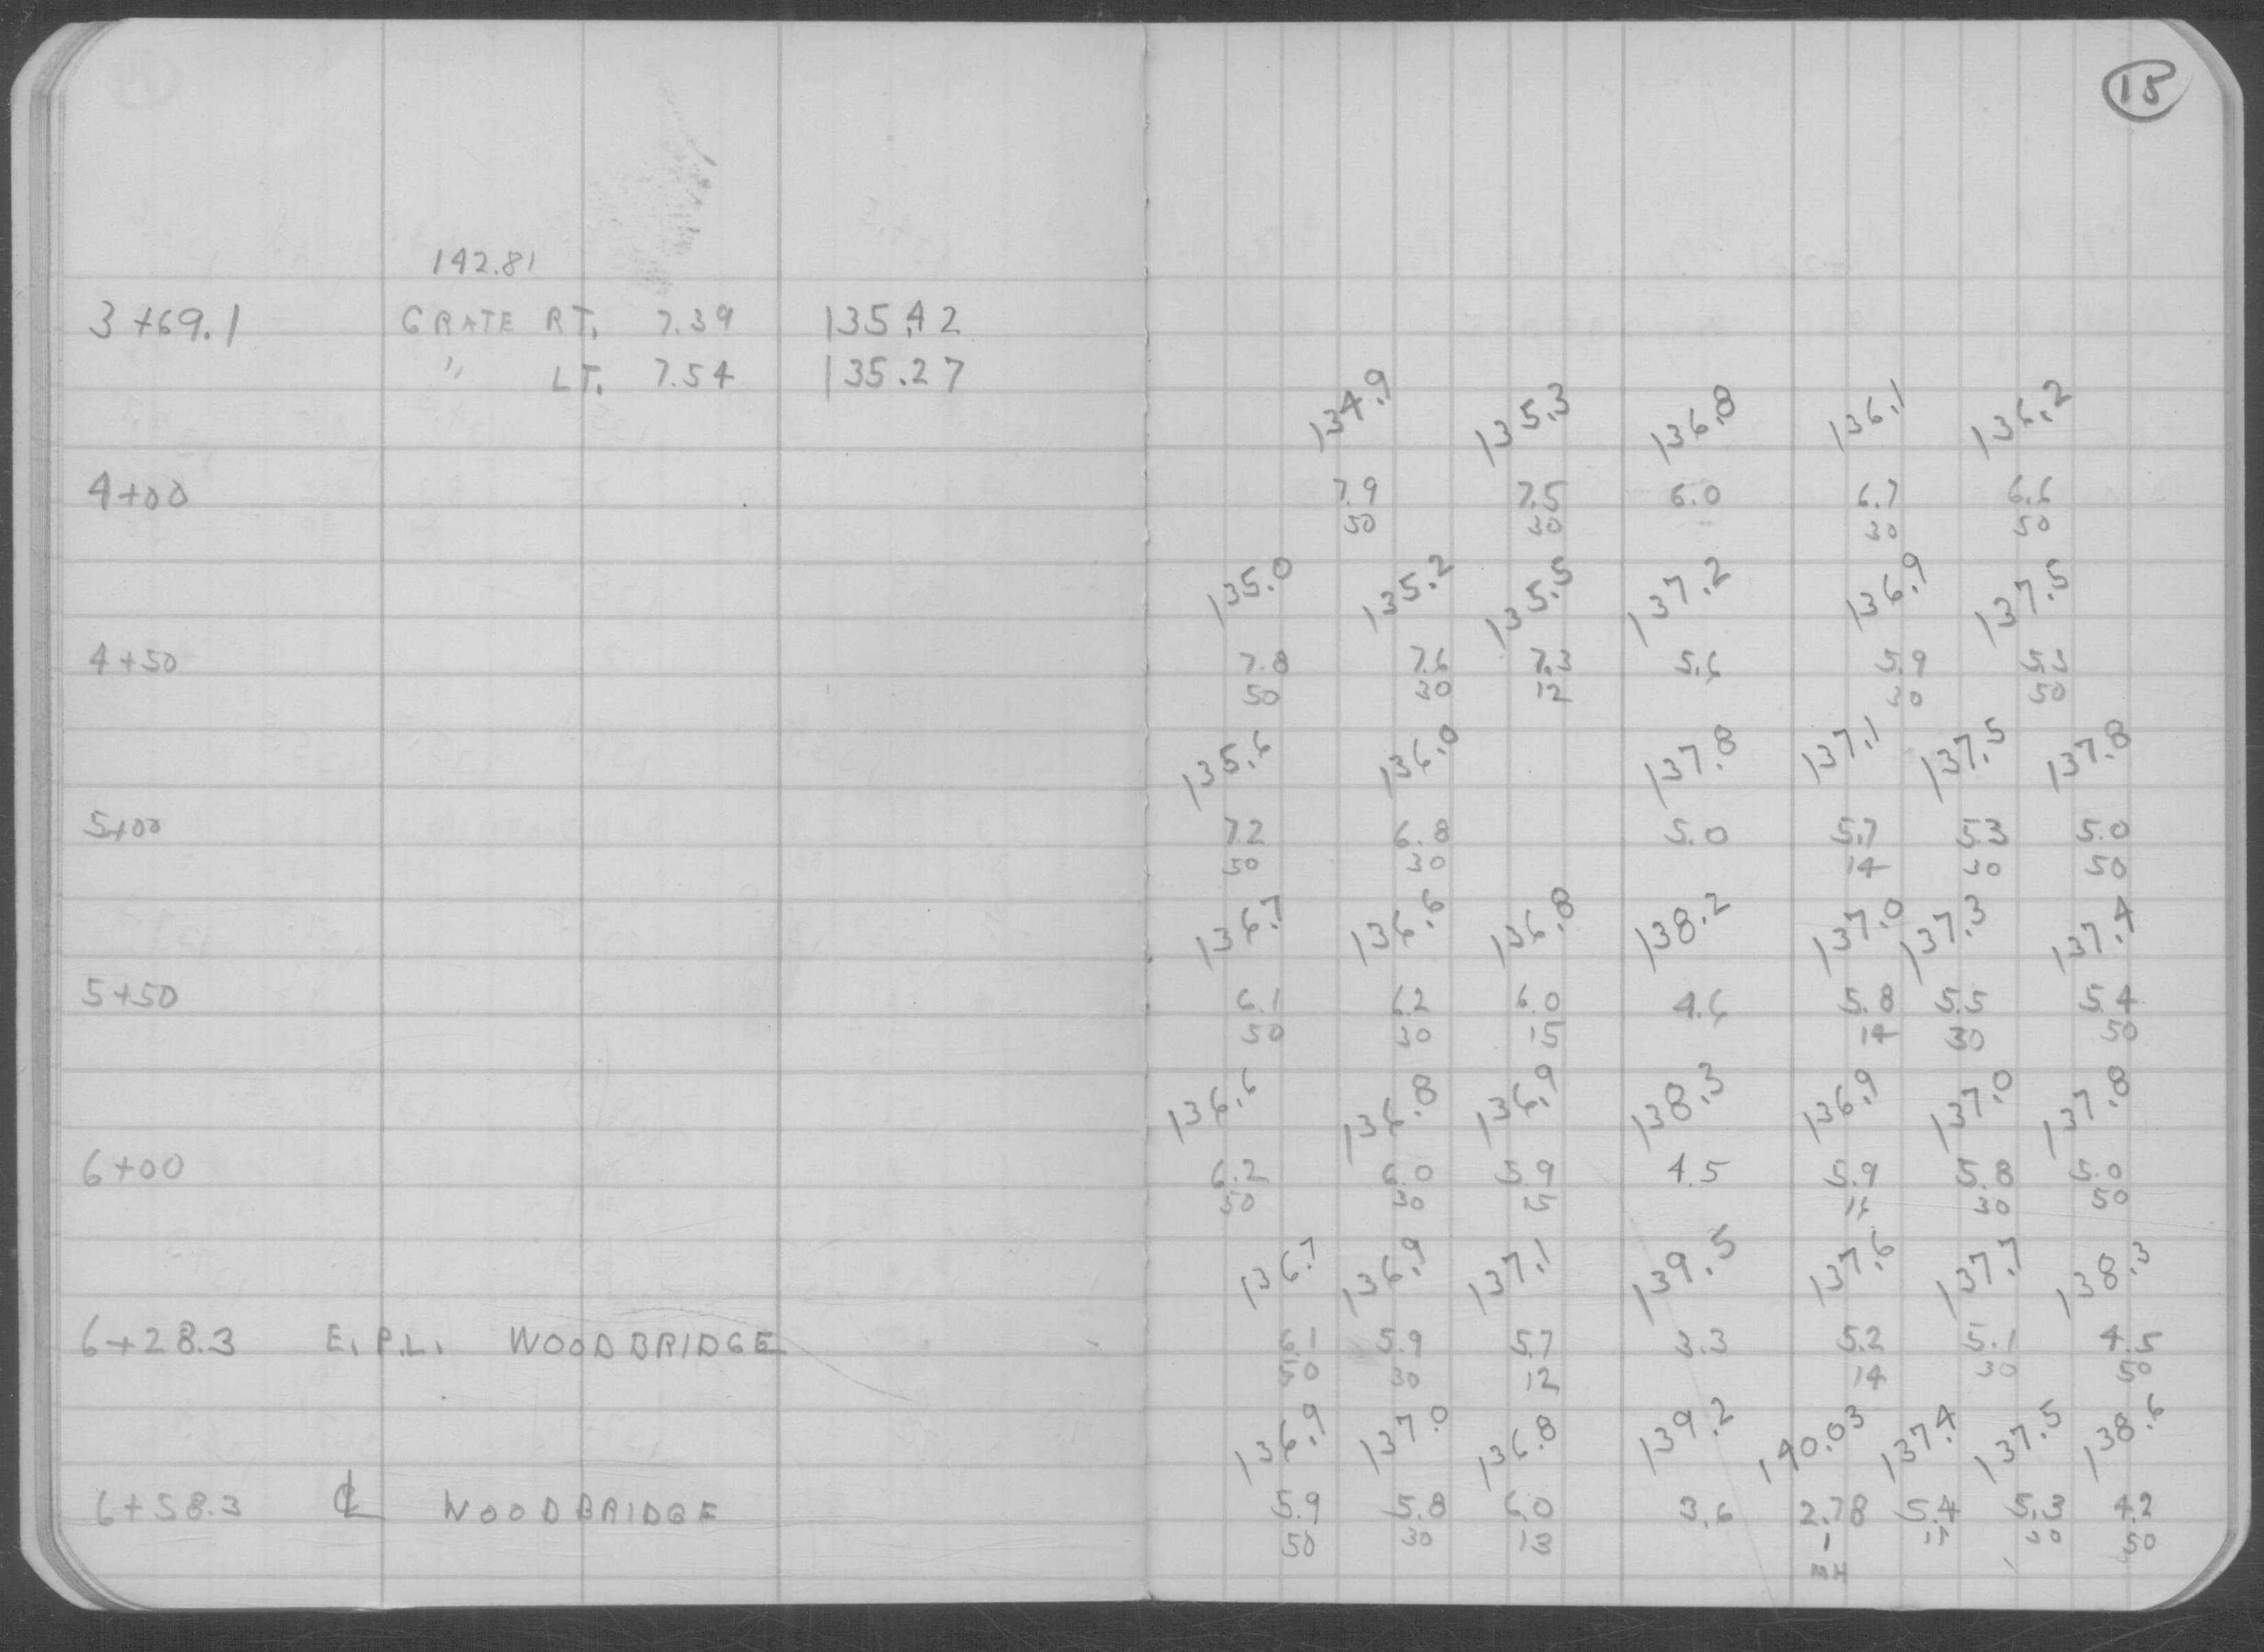 15
142.81
3+69.1 GRATE RT. 7.39 135.42
" LT. 7.54 135.27
134.9 135.3 136.8 136.1 136.2
4+00 7.9 7.5 6.0 6.7 6.6
50 30 30 50
135.0 135.2 135.5 137.2 136.9 137.5
4+50 7.8 7.6 7.3 5.6 5.9 5.3
50 30 12 30 50
135.6 136.0 137.8 137.1 137.5 137.8
5+00 7.2 6.8 5.0 5.7 5.3 5.0
50 30 14 30 50
136.7 136.6 136.8 138.2 137.0 137.3 137.4
5+50 6.1 6.2 6.0 4.6 5.8 5.5 5.4
50 30 15 14 30 50
136.6 136.8 136.9 138.3 136.9 137.0 137.8
6+00 6.2 6.0 5.9 4.5 5.9 5.8 5.0
50 30 15 30 50
136.7 136.9 137.1 139.5 137.6 137.7 138.3
6+28.3 E. P.L. WOODBRIDGE 6.1 5.9 5.7 3.3 5.2 5.1 4.5
50 30 12 14 30 50
136.9 137.0 136.8 139.2 140.03 137.4 137.5 138.6
6+58.3 ℄ WOODBRIDGE 5.9 5.8 6.0 3.6 2.78 5.4 5.3 4.2
50 30 13 1 30 50
MH